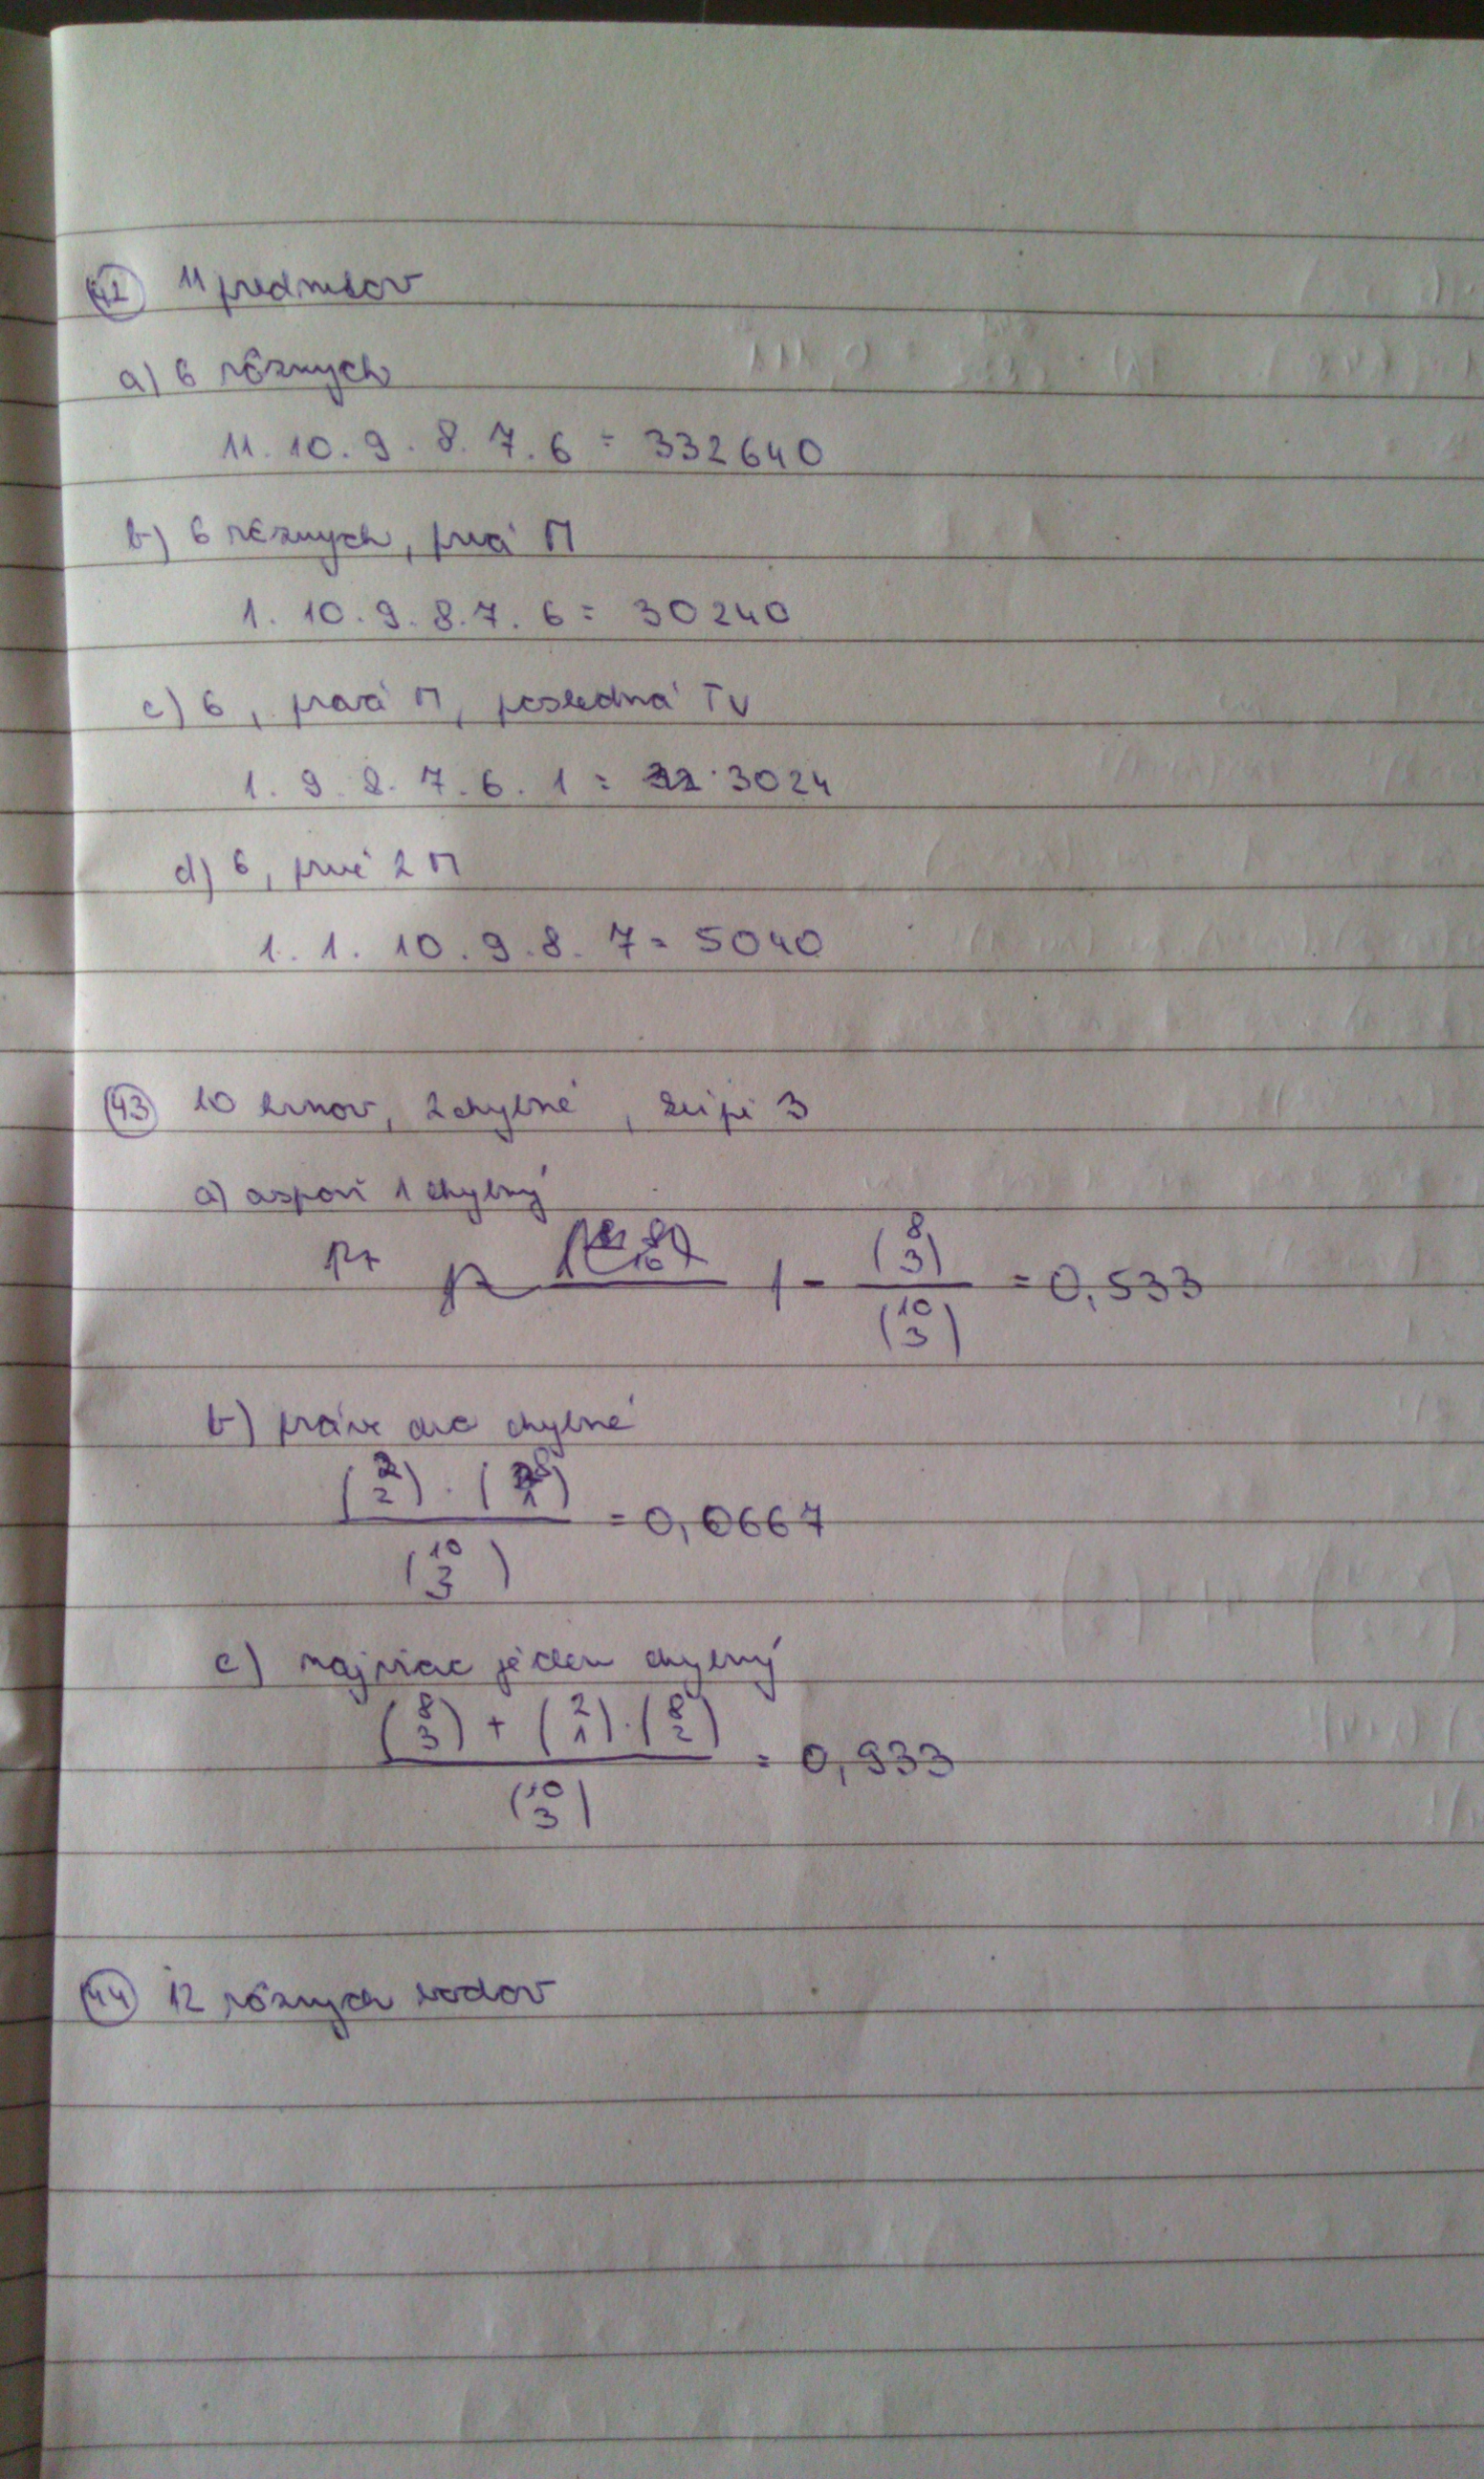 42 11 predmetov
a) 6 rôznych
11. 10. 9. 8. 7. 6 = 332640
b) 6 rôznych, prvá M
1. 10. 9. 8. 7. 6 = 30240
c) 6, prvá M, posledná Tv
1. 9. 8. 7. 6. 1 = 3024
d) 6, prvé 2 M
1. 1. 10. 9. 8. 7 = 5040
43 10 krkov, 2 chybné, kúpi 3
a) aspoň 1 chybný
1 - (8 3) / (10 3) = 0,533
b) práve dve chybné
(2 2) . (8 1) / (10 3) = 0,0667
c) najviac jeden chybný
(8 3) + (2 1) . (8 2) / (10 3) = 0,933
44 12 rôznych bodov